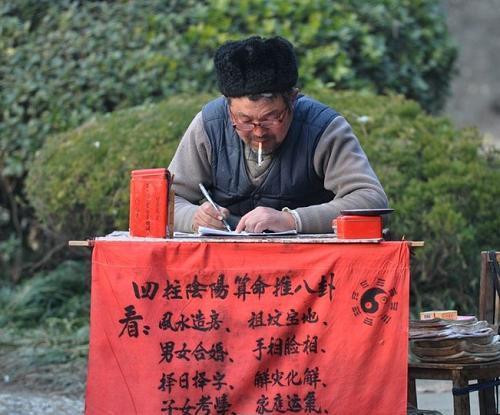 四柱陰陽算命推八卦
看：風水造房、祖坟宝地、
男女合婚、手相脸相、
择日择字、解灾化解、
子女考学、家庭运氣、